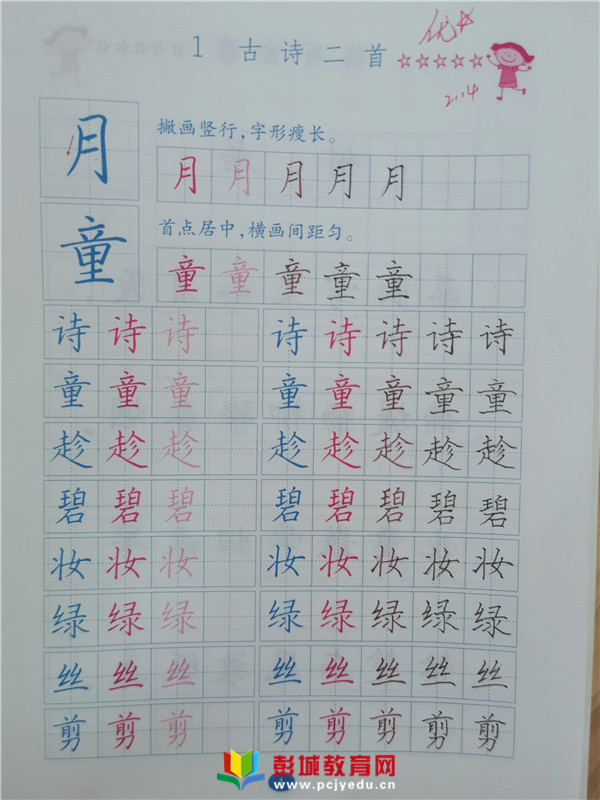 1 古诗二首
优
2.14
月
撇画竖行，字形瘦长。
月 月 月 月 月
童
首点居中，横画间距匀。
童 童 童 童 童
诗 诗 诗 诗 诗 诗 诗 诗
童 童 童 童 童 童 童 童
趁 趁 趁 趁 趁 趁 趁 趁
碧 碧 碧 碧 碧 碧 碧 碧
妆 妆 妆 妆 妆 妆 妆 妆
绿 绿 绿 绿 绿 绿 绿 绿
丝 丝 丝 丝 丝 丝 丝 丝
剪 剪 剪 剪 剪 剪 剪 剪
彭城教育网
www.pcjyedu.cn